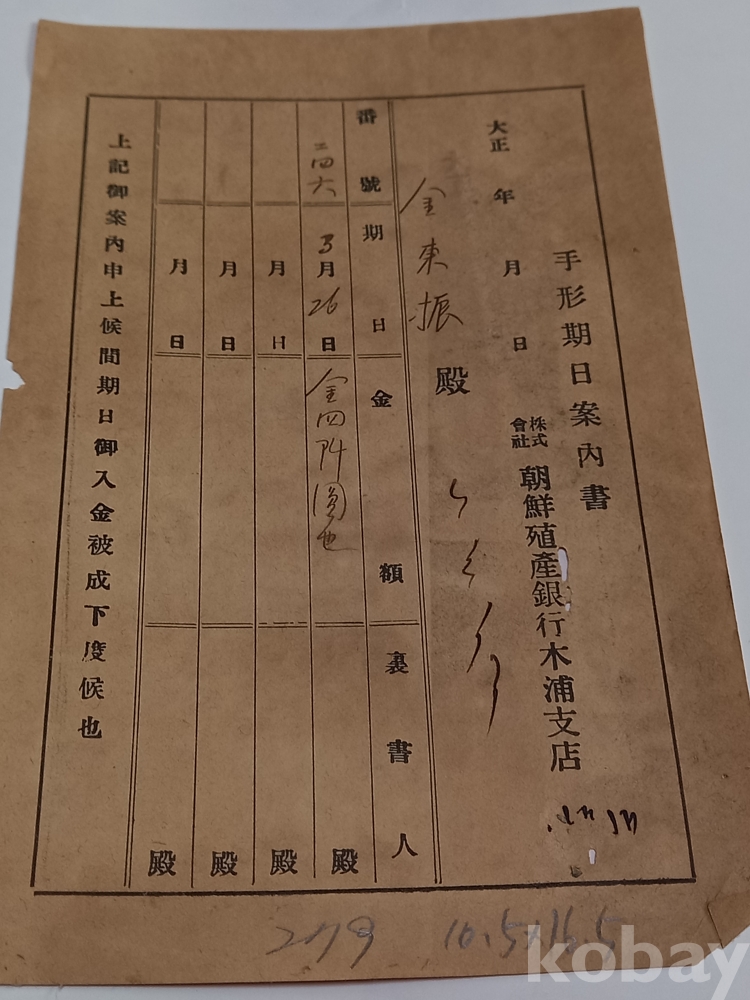 手形期日案內書
大正 年 月 日
株式會社 朝鮮殖產銀行木浦支店
金東振 殿
番號 期日 金額 裏書人
二四六 3月26日 金四阡圓也 殿
月 日 殿
月 日 殿
月 日 殿
上記御案內申上候間期日御入金被成下度候也
10.5×16.5
kobay